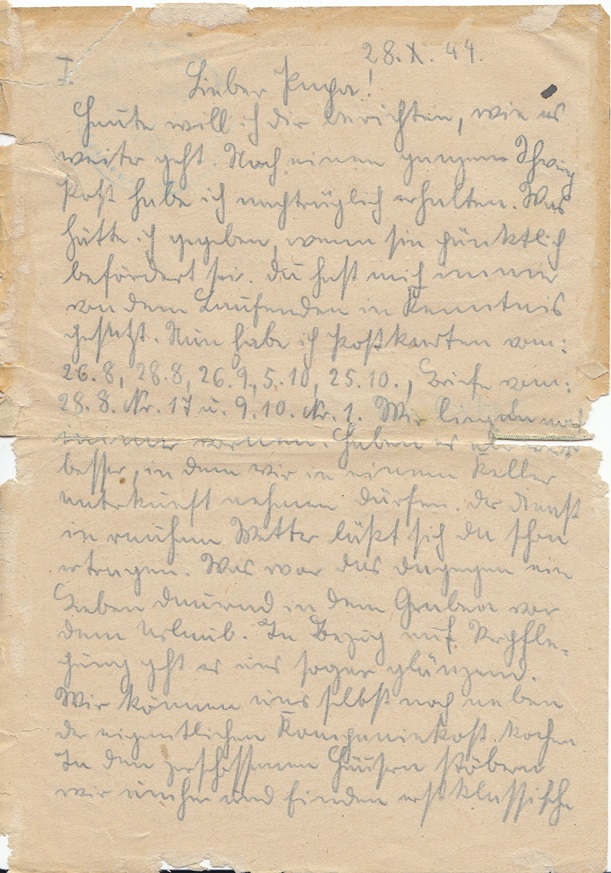 28. X. 44.
I.
Lieber Papa!
Heute will ich dir berichten, wie es
weiter geht. Noch einen ganzen Schwung
Post habe ich nachträglich erhalten. Was
hätte ich gegeben, wenn sie pünktlich
befördert sei. Du hast mich immer
von dem Laufenden in Kenntnis
gesetzt. Nun habe ich Postkarten vom:
26.8, 28.8, 26.9, 5.10, 25.10., Briefe vom:
28.8. Nr. 17 u. 9.10. Nr. 1. Wir liegen noch
immer vornen. Haben es aber
besser, in dem wir in einem Keller
unterkunft nehmen dürfen. Der Dienst
in rauhem Wetter läßt sich da schon
ertragen. Was war das dagegen ein
Leben dauernd in dem Graben vor
dem Urlaub. In Bezug auf Verpfle-
gung geht es uns sogar glänzend.
Wir können uns selbst noch neben
der eigentlichen Kompaniekost kochen
In den zerschossenen Häusern stöbern
wir umher und finden erstklassische